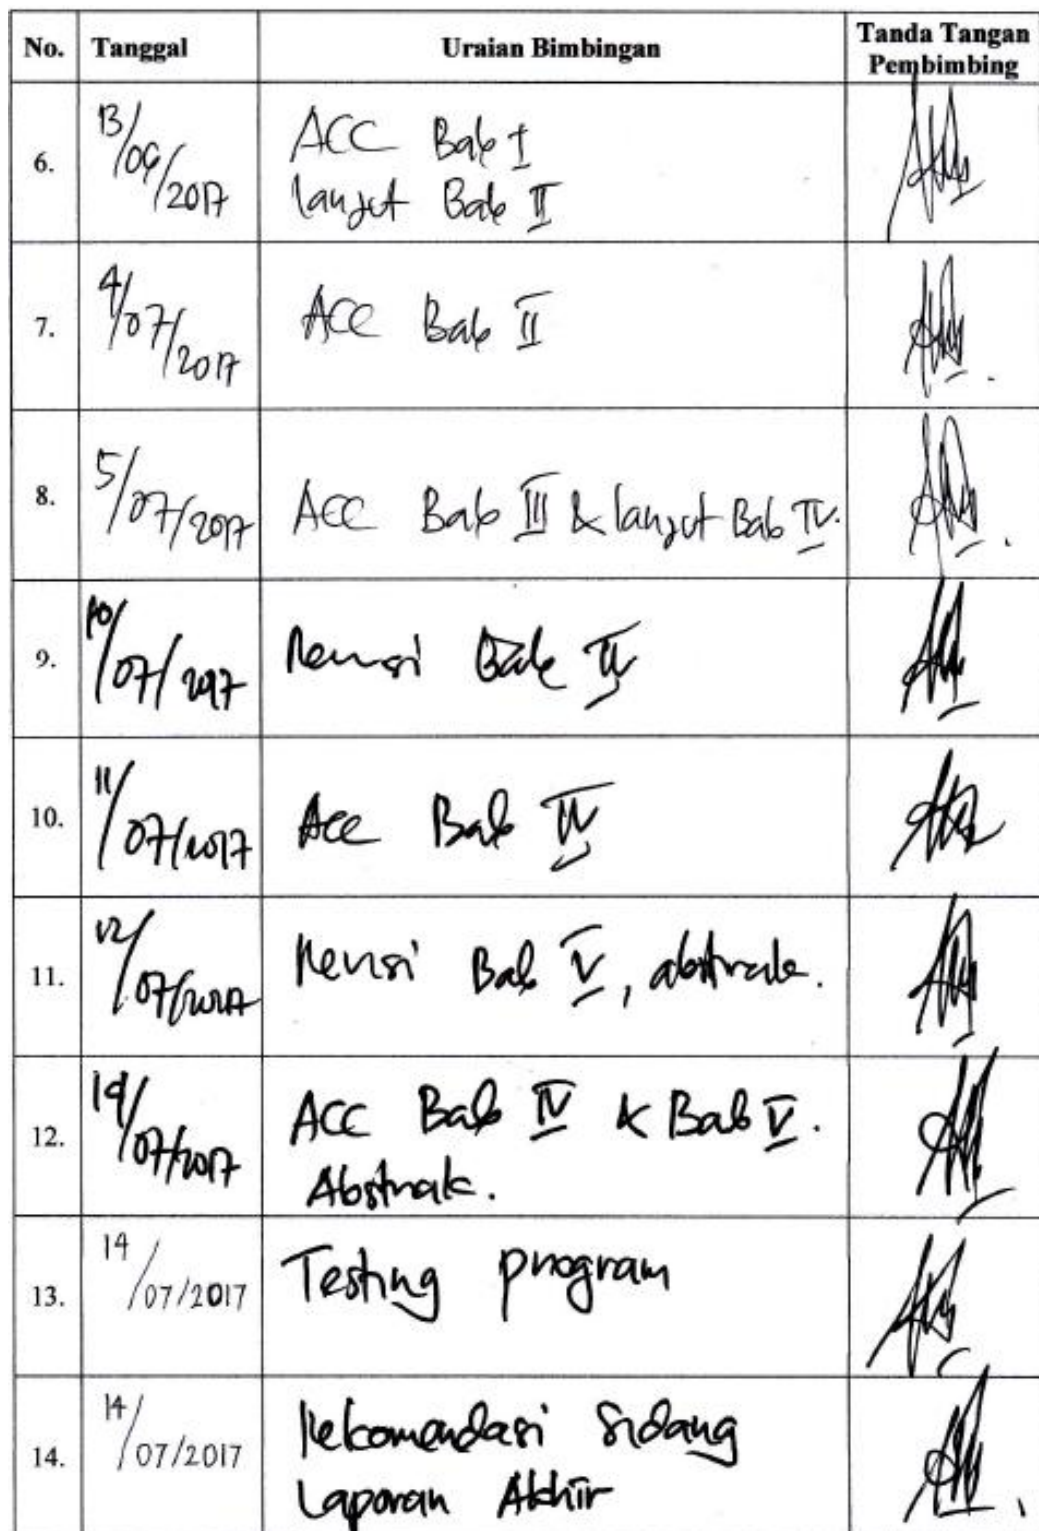 No. Tanggal Uraian Bimbingan Tanda Tangan Pembimbing
6. 13/06/2017 ACC Bab I
lanjut Bab II
7. 4/07/2017 ACC Bab II
8. 5/07/2017 ACC Bab III & lanjut Bab IV.
9. 10/07/2017 Revisi Bab IV
10. 11/07/2017 Acc Bab IV
11. 12/07/2017 Revisi Bab V, abstrak.
12. 14/07/2017 ACC Bab IV & Bab V.
Abstrak.
13. 14/07/2017 Testing program
14. 14/07/2017 Rekomendasi Sidang
Laporan Akhir